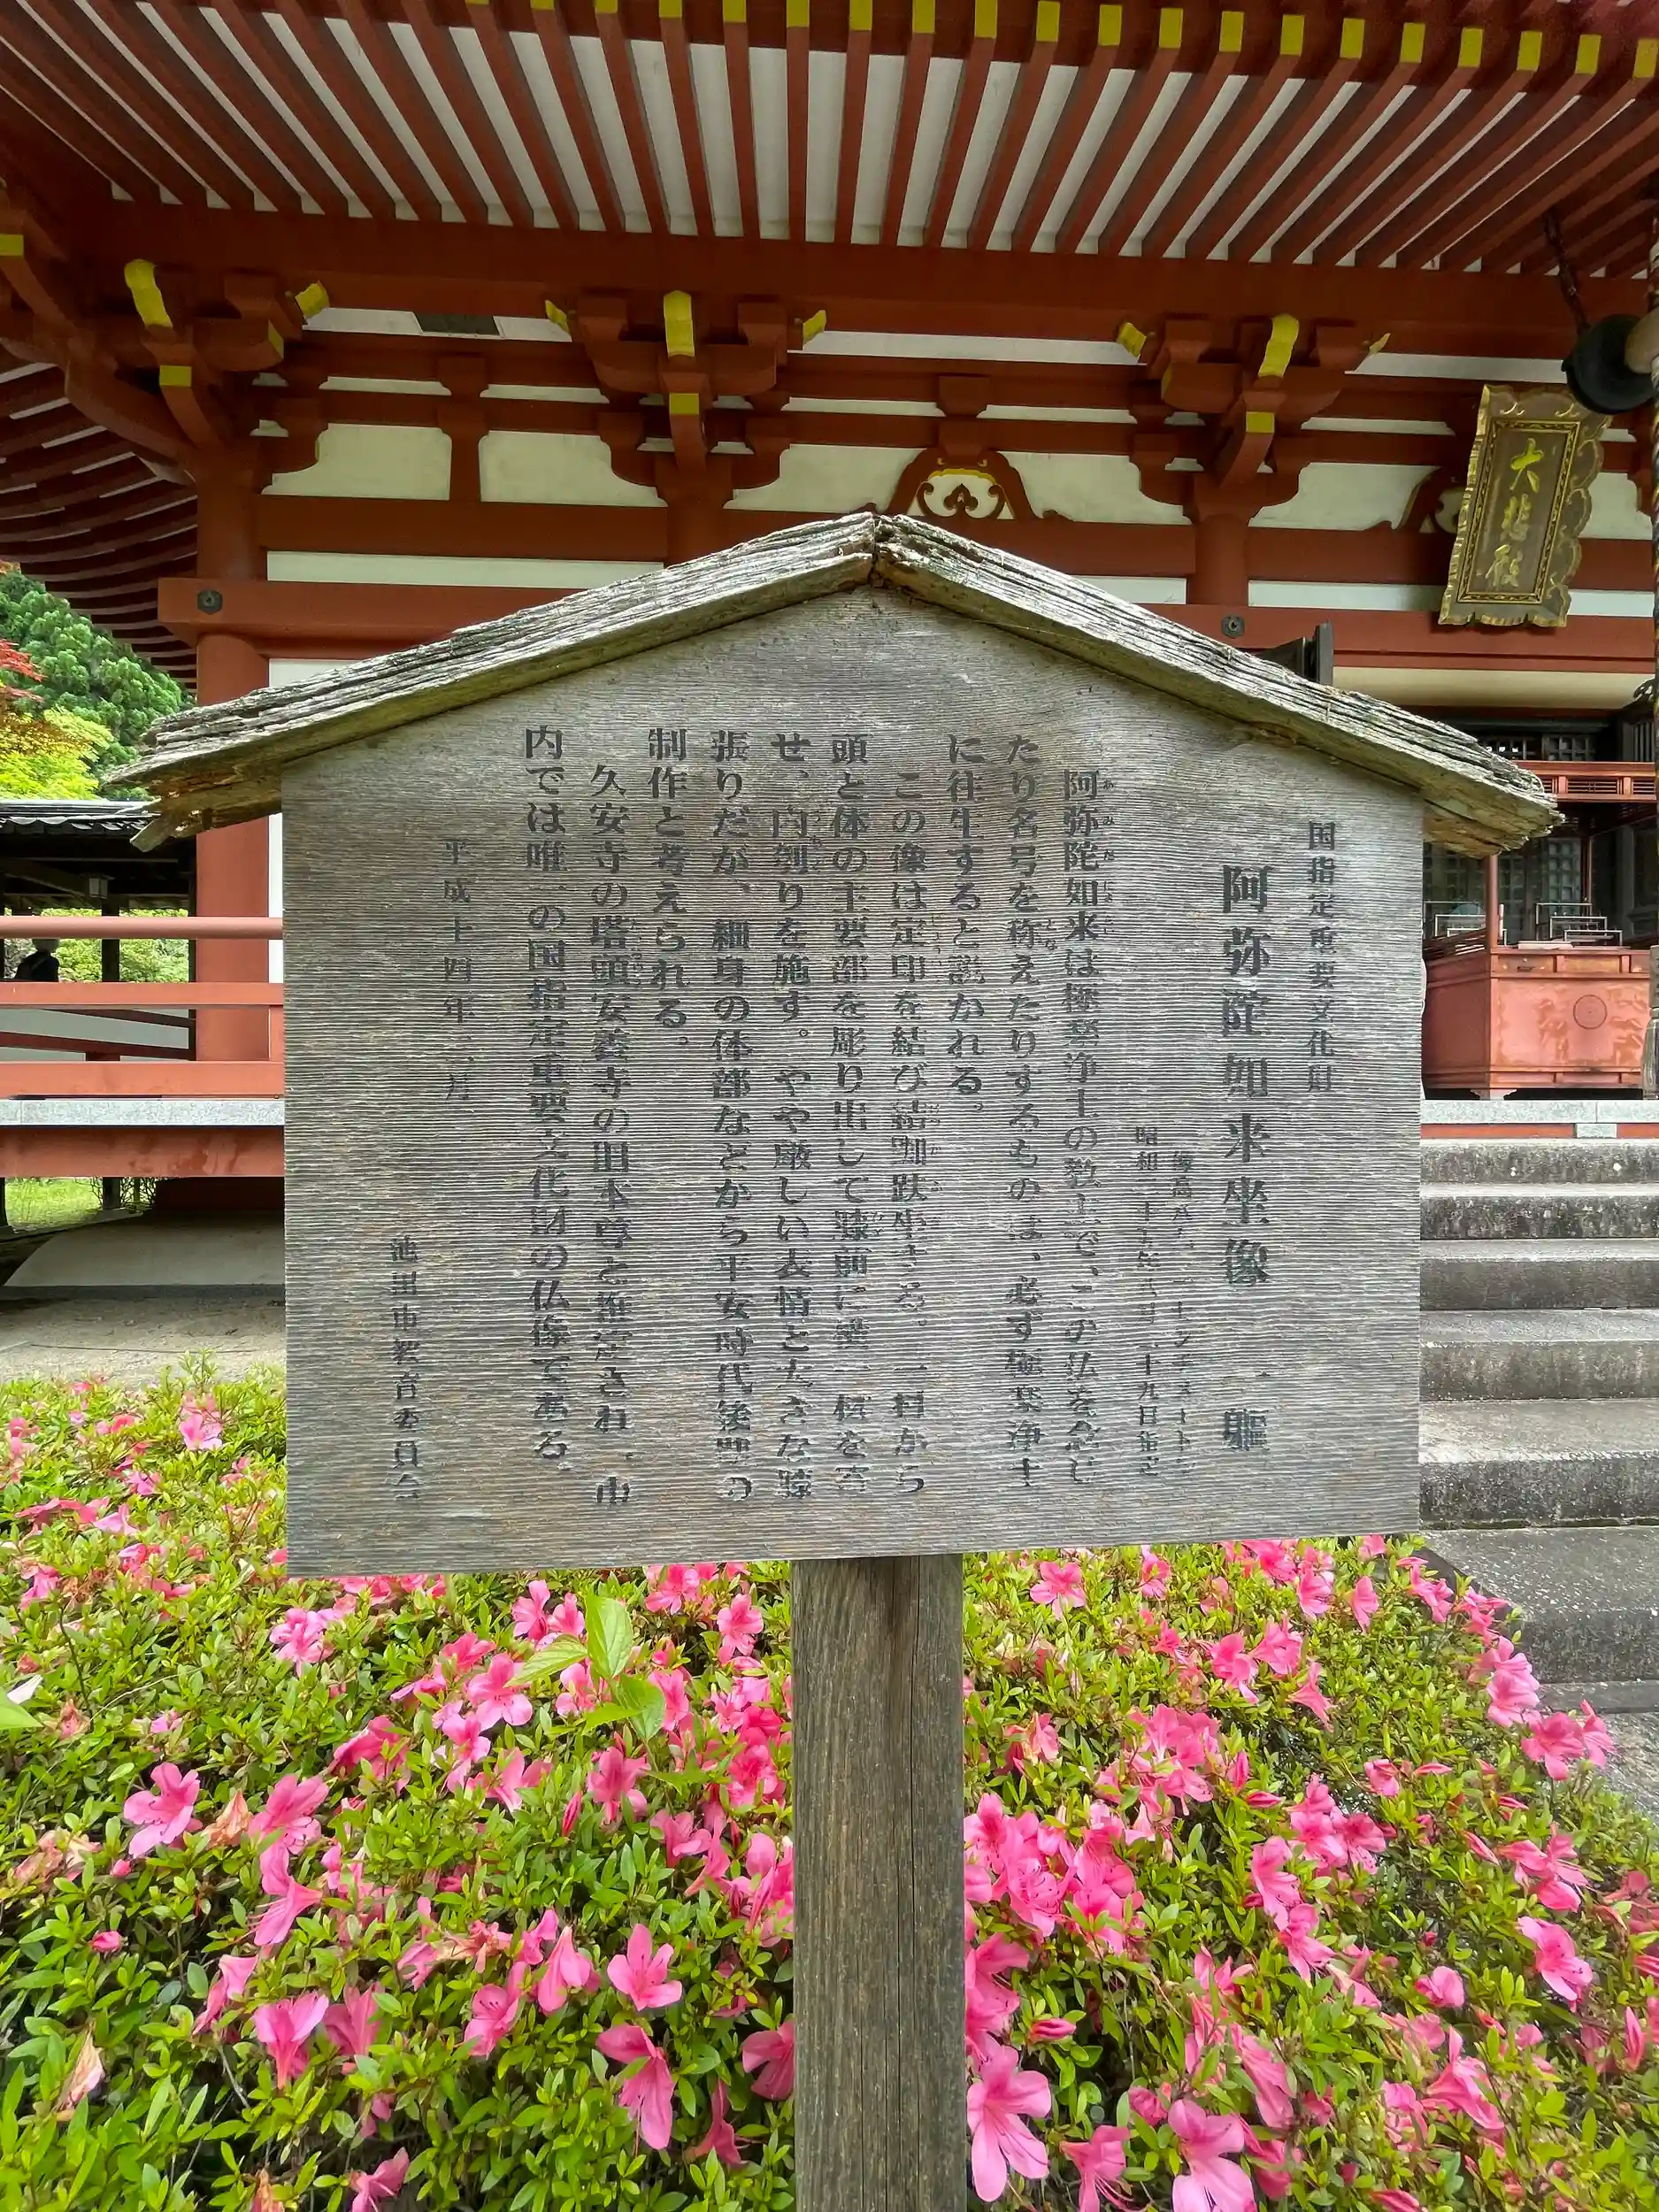 国指定重要文化財
阿弥陀如来坐像 一軀
像高八
センチメートル
昭和二十
年
月二十九日指定
阿弥陀如来は極楽浄土の教主で、この仏を念じ
たり名号を称えたりするものは、必ず極楽浄土
に往生すると説かれる。
この像は定印を結び結跏趺坐する。一材から
頭と体の主要部を彫り出して膝前に横一材を寄
せ、内刳りを施す。やや厳しい表情と大きな膝
張りだが、細身の体部などから平安時代後期の
制作と考えられる。
久安寺の塔頭安養寺の旧本尊と推定され、市
内では唯一の国指定重要文化財の仏像である。
平成十四年三月
池田市教育委員会
大悲殿